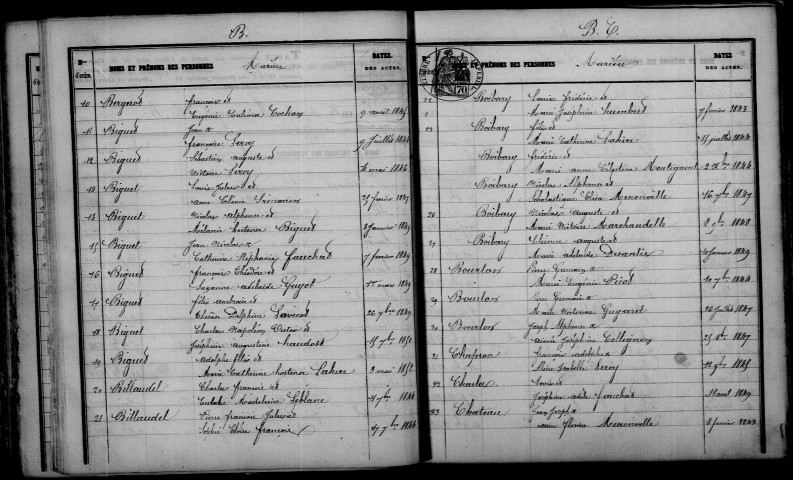 B.
Nos d'ordre. NOMS ET PRÉNOMS DES PERSONNES Mariées DATES DES ACTES.
10 Bergerot françois et
Eugénie Pauline Cochon 9 avril 1845
11 Biguet Jean et
françoise Leroy 9 Juillet 1844
12 Biguet Sébastien auguste et
Victoire Leroy mai 1846
13 Biguet Louis Jules et
anne Célénie 25 février 1847
14 Biguet Nicolas alphonse et
Mélanie hortense Biguet 8 Janvier 1849
15 Biguet Jean Nicolas et
Catherine Stéphanie fauchet 7 février 1849
16 Biguet françois Théodore et
Suzanne adélaïde Guyot 1er mars 1849
17 Biguet félix ambroise et
Delphine 26 9bre 1849
18 Biguet Charles Napoléon Victor et
Joséphine augustine haudost 15 7bre 1850
19 Biguet adolphe félix et
Marie Catherine hortense Lahire 3 mai 1852
20 Billaudel Charles françois et
Eulalie Madeleine Leblanc 4 7bre 1844
21 Billaudel Pierre françois Jules et
Cloïre françois 17 7bre 1844
B. C.
NOMS ET PRÉNOMS DES PERSONNES Mariées DATES DES ACTES.
22 Boibary Louis frédéric et
Marie Joséphine humbert 7 février 1843
23 Boibary félix et
Marie Catherine Lahire 15 juillet 1844
Boibary frédéric et
Marie anne Célestine Montignent 2 1844
Boibary Nicolas Alphonse et
Scholastique Elisa Menonville 16 7bre 1847
26 Boibary Nicolas auguste et
Marie Victoire Marchandelle 1848
27 Boibary Etienne auguste et
Marie adélaïde Desantix 10 Janvier 1849
28 Bourlon Pierre Germain et
Marie Eugénie Picot 10 7bre 1844
29 Bourlon Pierre Germain et
Marie Victorine Guyard 26 Juillet 1847
30 Bourlon Joseph Alphonse et
aimée Joséphine Collignon 25 8bre 1847
31 Chapron françois adolphe et
Isabelle Leroy 12 9bre 1845
32 Charlex Louis et
Joséphine adèle fauchet 18 avril 1849
33 Chateau Jean Joseph et
florine Menonville 8 février 1843